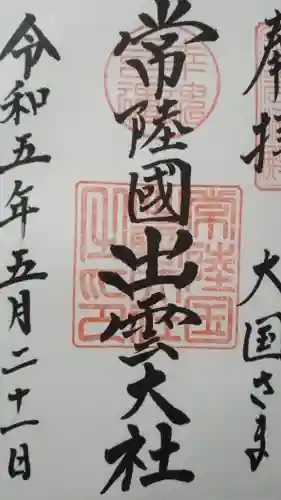 奉拝 大国さま
常陸國出雲大社
令和五年五月二十一日